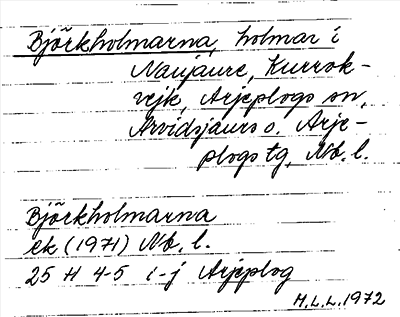 Björkholmarna, holmar i
Naujaure, Kurrok-
vejk, Arjeplogs sn,
Arvidsjaurs o. Arje-
plogs tg, Nb. l.
Björkholmarna
ek (1971) Nb. l.
25 H 4-5 i-j Arjeplog
H.L.L. 1972